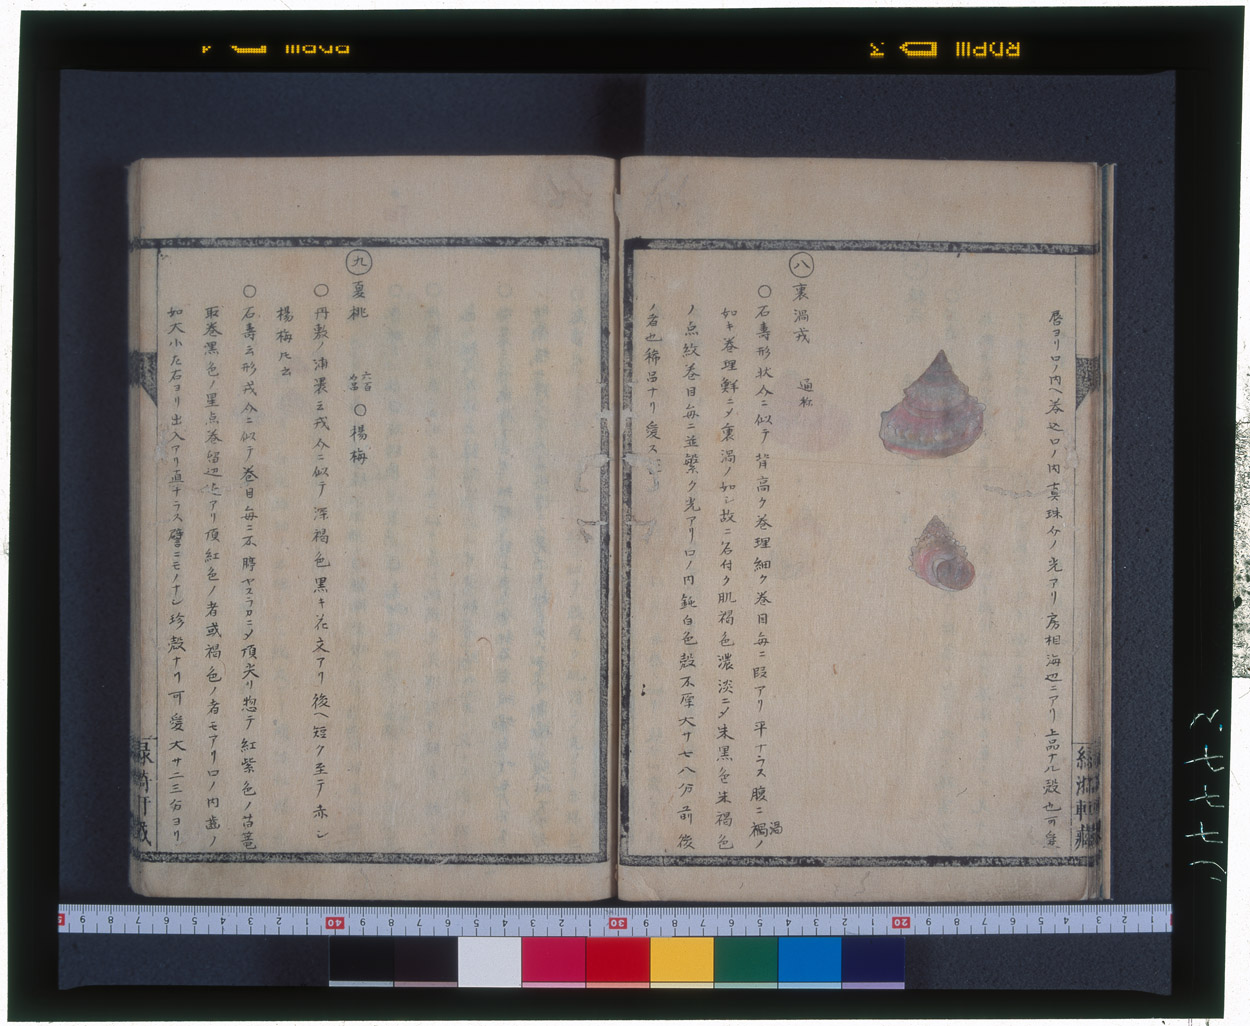 唇ヨリ口ノ内ヘ巻込口ノ内真珠介ノ光アリ房相海辺ニアリ上品ナル殻也可愛
八 裏渦戎 通称
○石壽形状今ニ似テ背高ク巻理細ク巻目毎ニ段アリ平ナラス腹ニ渦ノ
如キ巻理鮮ニメ裏渦ノ如シ故ニ名付ク肌褐色濃淡ニメ朱黒色朱褐色
ノ点紋巻目毎ニ並繁ク光アリ口ノ内鈍白色殻不厚大サ七八分前後
ノ者也稀品ナリ愛ス
九 夏桃 六百介品 ○楊梅
○丹敷ノ浦濃云戎介ニ似テ深褐色黒キ花文アリ後ヘ短ク至テ赤シ
楊梅ニ出
○石壽云形戎介ニ似テ巻目毎ニ不膨ヤスラカニメ頂尖リ惣テ紅紫色ノ
取巻黒色ノ星点巻留辺ニアリ頂紅色ノ者或褐色ノ者モアリ口ノ内歯ノ
如大小左右ヨリ出入アリ直ナラス譬ニモノナシ珍殻ナリ可愛大サ二三分ヨリ
RDPIII